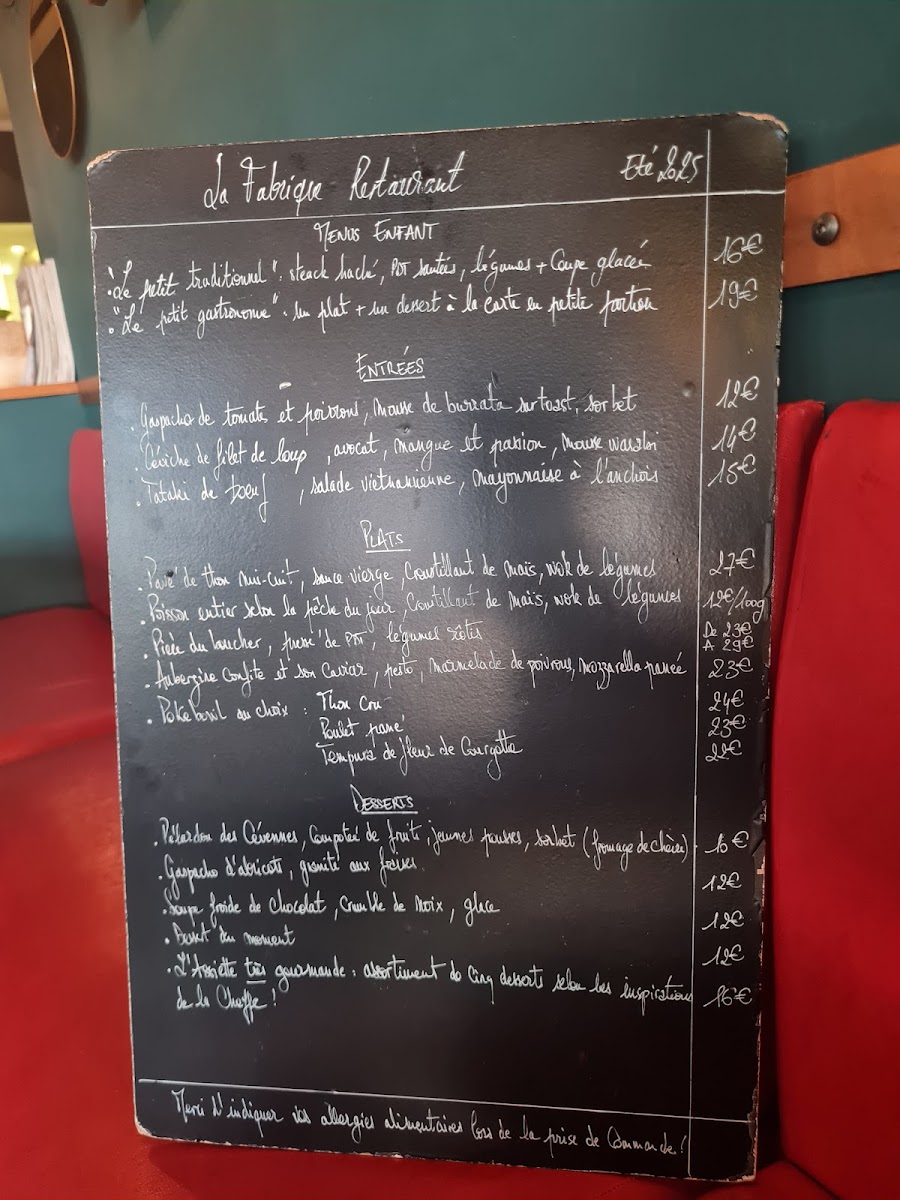 La Fabrique Restaurant Eté 2025
MENUS ENFANT
. "Le petit traditionnel" : steack haché, PDT sautées, légumes + Coupe glacée 16€
. "Le petit gastronome" : un plat + un dessert à la carte en petite portion 19€
ENTRÉES
. Gaspacho de tomate et poivrons, mousse de burrata sur toast, sorbet 12€
. Céviche de filet de loup , avocat, mangue et passion, mousse wasabi 14€
. Tataki de boeuf , salade viethnamienne, mayonnaise à l'anchois 15€
PLATS
. Pavé de thon mi-cuit, sauce vierge, Croustillant de maïs, wok de légumes 27€
. Poisson entier selon la pêche du jour, Croustillant de maïs, wok de légumes 12€/100g
. Pièce du boucher, purée de PDT, légumes rôtis De 23€ A 29€
. Aubergine Confite et son Caviar, pesto, marmelade de poivrons, mozzarella panée 23€
. Poke bowl au choix : Thon Cru 24€
Poulet pané 23€
Tempura de fleur de Courgette 22€
DESSERTS
. Pélardon des Cévennes, Compotée de fruit, jeunes pousses, sorbet (fromage de chèvre) 10€
. Gaspacho d'abricots, granité aux fraises 12€
. Soupe froide de chocolat, Crumble de noix, glace 12€
. Dessert du moment 12€
. L'Assiette très gourmande : assortiment de Cinq desserts selon les inspirations
de la Cheffe ! 16€
Merci d'indiquer vos allergies alimentaires lors de la prise de Commande !